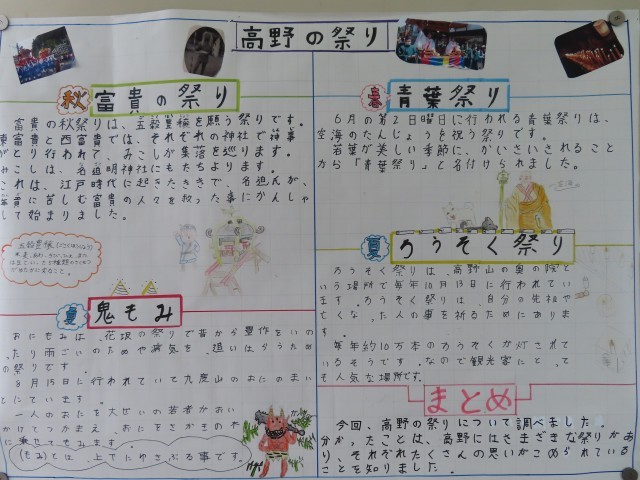 高野の祭り
秋 富貴の祭り
富貴の秋祭りは、五穀豊穣を願う祭りです。
東富貴と西富貴では、それぞれの神社で神事
がとり行われて みこしが集落を巡ります。
みこしは、名迫明神社にもたちよります。
これは、江戸時代に起きたききで、名迫氏が、
年貢に苦しむ富貴の人々を救った事にかんしゃ
して始まりました。
五穀豊穣(ごこくほうじょう)
夏 鬼もみ
おにもみは、花坂の祭りで昔から豊作をいの
たり雨ごいのためや病気を、追いはらうため
の祭りです。
8月15日に行われていて九度山のおにのまい
とにています。
一人のおにを大ぜいの若者がおい
かけてつかまえ、おにをさがきの木
に乗せてもみます。
(もみ)とは、上下にゆさぶる事です。
春 青葉祭り
6月の第2日曜日に行われる青葉祭りは、
空海のたんじょうを祝う祭りです。
若葉が美しい季節に、かいさいされること
から「青葉祭り」と名付けられました。
夏 ろうそく祭り
ろうそく祭りは、高野山の奥の院と
いう場所で毎年 日に行われてい
ます。ろうそく祭りは、自分の先祖や
亡くなった人の事を祈るためにありま
す。
毎年約10万本のろうそくが灯されて
いるそうです。なので観光客にとっても
人気な場所です。
まとめ
今回、高野の祭りについて調べました。
分かったことは、高野にはさまざまな祭りがあ
り、それぞれたくさんの思いがこめられている
ことを知りました。